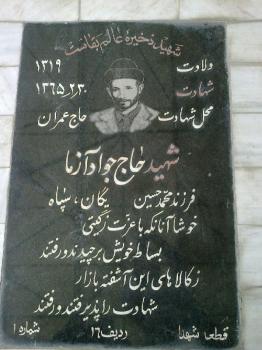 شهید ذخیره عالم بقاست
ولادت ۱۳۱۹
شهادت ۱۳۶۵٫۲٫۳۰
محل شهادت حاج عمران
شهید حاج جواد آزما
فرزند محمدحسین یگان، سپاه
خوشا آنانکه با عزت ز گیتی
بساط خویش برچیدند و رفتند
ز کالاهای این آشفته بازار
شهادت را پذیرفتند و رفتند
قطعه شهدا ردیف ۱۶ شماره ۱